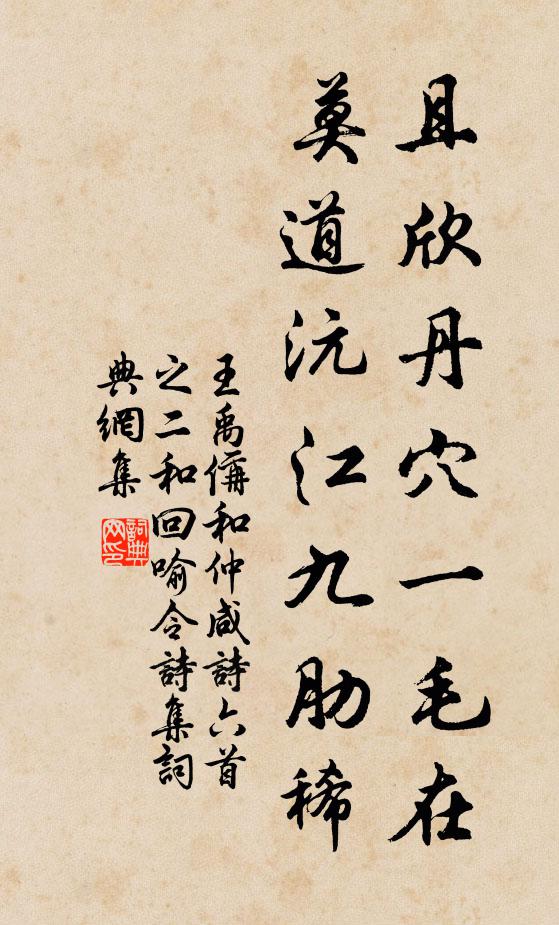 且欣丹穴一毛在
莫道沅江九肋稀
王禹偁和仲咸詩六首
之二和回喻令詩集詞
典網集
詞典网印